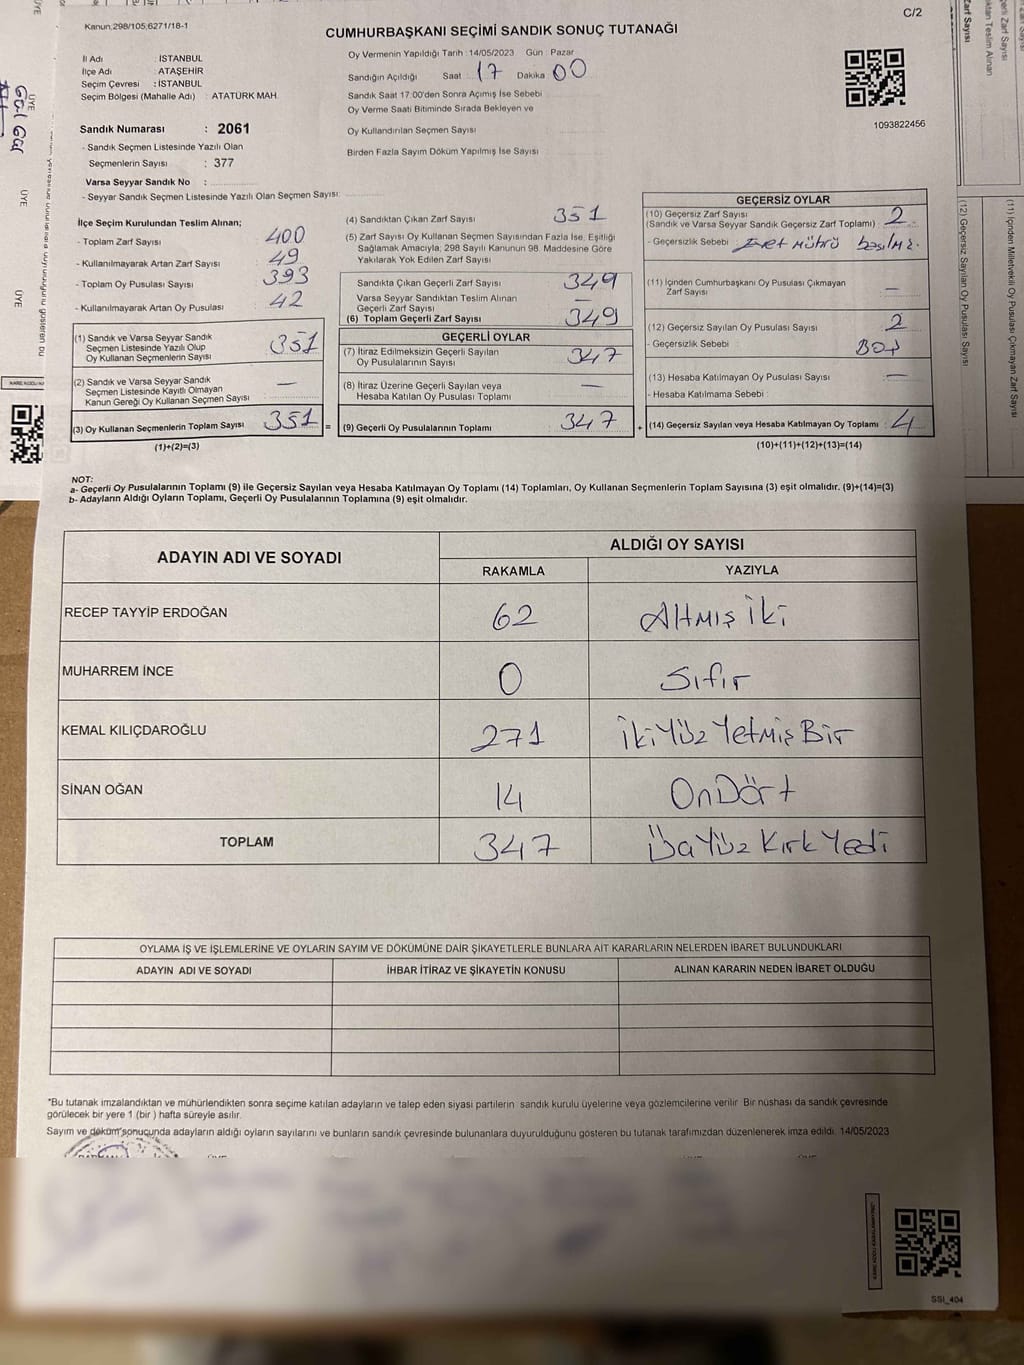 Kanun:298/105;6271/18-1
C/2
CUMHURBAŞKANI SEÇİMİ SANDIK SONUÇ TUTANAĞI
İl Adı : İSTANBUL
İlçe Adı : ATAŞEHİR
Seçim Çevresi : İSTANBUL
Seçim Bölgesi (Mahalle Adı) : ATATÜRK MAH.
Sandık Numarası : 2061
- Sandık Seçmen Listesinde Yazılı Olan
Seçmenlerin Sayısı : 377
Varsa Seyyar Sandık No :
- Seyyar Sandık Seçmen Listesinde Yazılı Olan Seçmen Sayısı:
Oy Vermenin Yapıldığı Tarih : 14/05/2023 Gün : Pazar
Sandığın Açıldığı Saat 17 Dakika 00
Sandık Saat 17:00'den Sonra Açımış İse Sebebi
Oy Verme Saati Bitiminde Sırada Bekleyen ve
Oy Kullandırılan Seçmen Sayısı
Birden Fazla Sayım Döküm Yapılmış İse Sebebi
1093822456
İlçe Seçim Kurulundan Teslim Alınan;
- Toplam Zarf Sayısı 400
- Kullanılmayarak Artan Zarf Sayısı 49
- Toplam Oy Pusulası Sayısı 393
- Kullanılmayarak Artan Oy Pusulası 42
(1) Sandık ve Varsa Seyyar Sandık
Seçmen Listesinde Yazılı Olup
Oy Kullanan Seçmenlerin Sayısı 351
(2) Sandık ve Varsa Seyyar Sandık
Seçmen Listesinde Kayıtlı Olmayan
Kanun Gereği Oy Kullanan Seçmen Sayısı —
(3) Oy Kullanan Seçmenlerin Toplam Sayısı 351 =
(1)+(2)=(3)
(4) Sandıktan Çıkan Zarf Sayısı 351
(5) Zarf Sayısı Oy Kullanan Seçmen Sayısından Fazla İse, Eşitliği
Sağlamak Amacıyla, 298 Sayılı Kanunun 98. Maddesine Göre
Yakılarak Yok Edilen Zarf Sayısı
Sandıkta Çıkan Geçerli Zarf Sayısı 349
Varsa Seyyar Sandıktan Teslim Alınan
Geçerli Zarf Sayısı —
(6) Toplam Geçerli Zarf Sayısı 349
GEÇERLİ OYLAR
(7) İtiraz Edilmeksizin Geçerli Sayılan
Oy Pusulalarının Sayısı 347
(8) İtiraz Üzerine Geçerli Sayılan veya
Hesaba Katılan Oy Pusulası Toplamı —
(9) Geçerli Oy Pusulalarının Toplamı 347 +
GEÇERSİZ OYLAR
(10) Geçersiz Zarf Sayısı
(Sandık ve Varsa Seyyar Sandık Geçersiz Zarf Toplamı) : 2
- Geçersizlik Sebebi Evet mührü basılmış.
(11) İçinden Cumhurbaşkanı Oy Pusulası Çıkmayan
Zarf Sayısı —
(12) Geçersiz Sayılan Oy Pusulası Sayısı : 2
- Geçersizlik Sebebi : Boş
(13) Hesaba Katılmayan Oy Pusulası Sayısı : —
- Hesaba Katılmama Sebebi :
(14) Geçersiz Sayılan veya Hesaba Katılmayan Oy Toplamı : 4
(10)+(11)+(12)+(13)=(14)
NOT:
a- Geçerli Oy Pusulalarının Toplamı (9) ile Geçersiz Sayılan veya Hesaba Katılmayan Oy Toplamı (14) Toplamları, Oy Kullanan Seçmenlerin Toplam Sayısına (3) eşit olmalıdır. (9)+(14)=(3)
b- Adayların Aldığı Oyların Toplamı, Geçerli Oy Pusulalarının Toplamına (9) eşit olmalıdır.
ADAYIN ADI VE SOYADI
ALDIĞI OY SAYISI
RAKAMLA YAZIYLA
RECEP TAYYİP ERDOĞAN 62 Altmış iki
MUHARREM İNCE 0 Sıfır
KEMAL KILIÇDAROĞLU 271 İki Yüz Yetmiş Bir
SİNAN OĞAN 14 On Dört
TOPLAM 347 Üç Yüz Kırk Yedi
OYLAMA İŞ VE İŞLEMLERİNE VE OYLARIN SAYIM VE DÖKÜMÜNE DAİR ŞİKAYETLERLE BUNLARA AİT KARARLARIN NELERDEN İBARET BULUNDUKLARI
ADAYIN ADI VE SOYADI İHBAR İTİRAZ VE ŞİKAYETİN KONUSU ALINAN KARARIN NEDEN İBARET OLDUĞU
*Bu tutanak imzalandıktan ve mühürlendikten sonra seçime katılan adayların ve talep eden siyasi partilerin sandık kurulu üyelerine veya gözlemcilerine verilir. Bir nüshası da sandık çevresinde
görülecek bir yere 1 (bir ) hafta süreyle asılır.
Sayım ve döküm sonucunda adayların aldığı oyların sayılarını ve bunların sandık çevresinde bulunanlara duyurulduğunu gösteren bu tutanak tarafımızdan düzenlenerek imza edildi. 14/05/2023
SSI_404
ÜYE
ÜYE
ÜYE
Zarf Sayısı
(12) Geçersiz Sayılan Oy Pusulası Sayısı
(11) İçinden Milletvekili Oy Pusulası Çıkmayan Zarf Sayısı